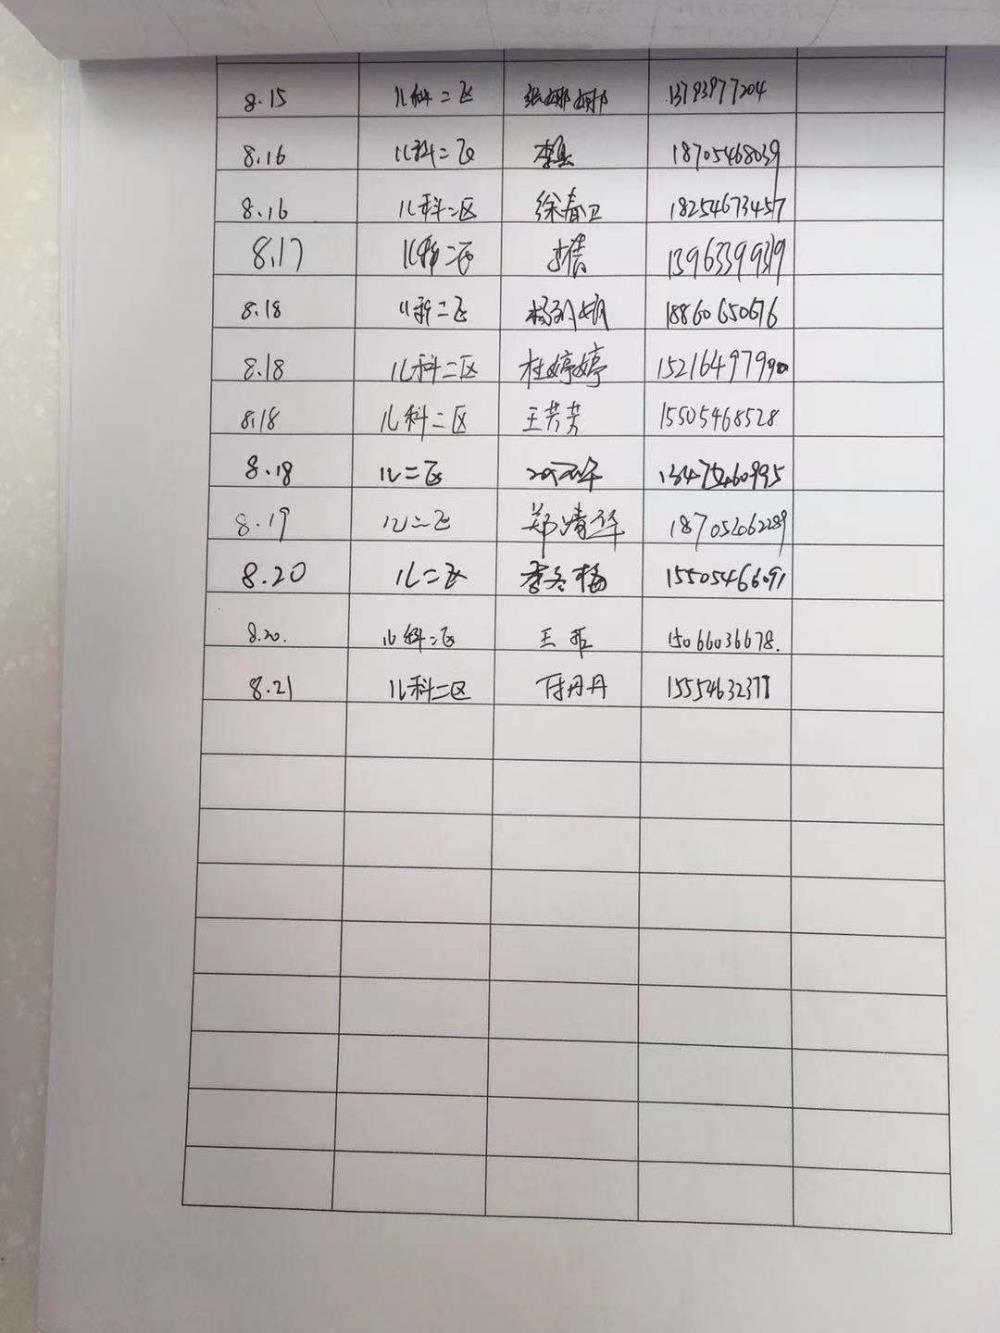 8.15 儿科二区 张娜娜 13793977204
8.16 儿科二区 18705468039
8.16 儿科二区 徐春卫 18254673457
8.17 儿科二区 李倩
8.18 儿科二区 18860650676
8.18 儿科二区 杜婷婷 15216497990
8.18 儿科二区 王芳芳 15505468528
8.18 儿二区
8.19 儿二区 郑清华
8.20 儿二区 李冬梅 15505466091
8.20. 儿科二区 王菲 15066036678.
8.21 儿科二区 付丹丹